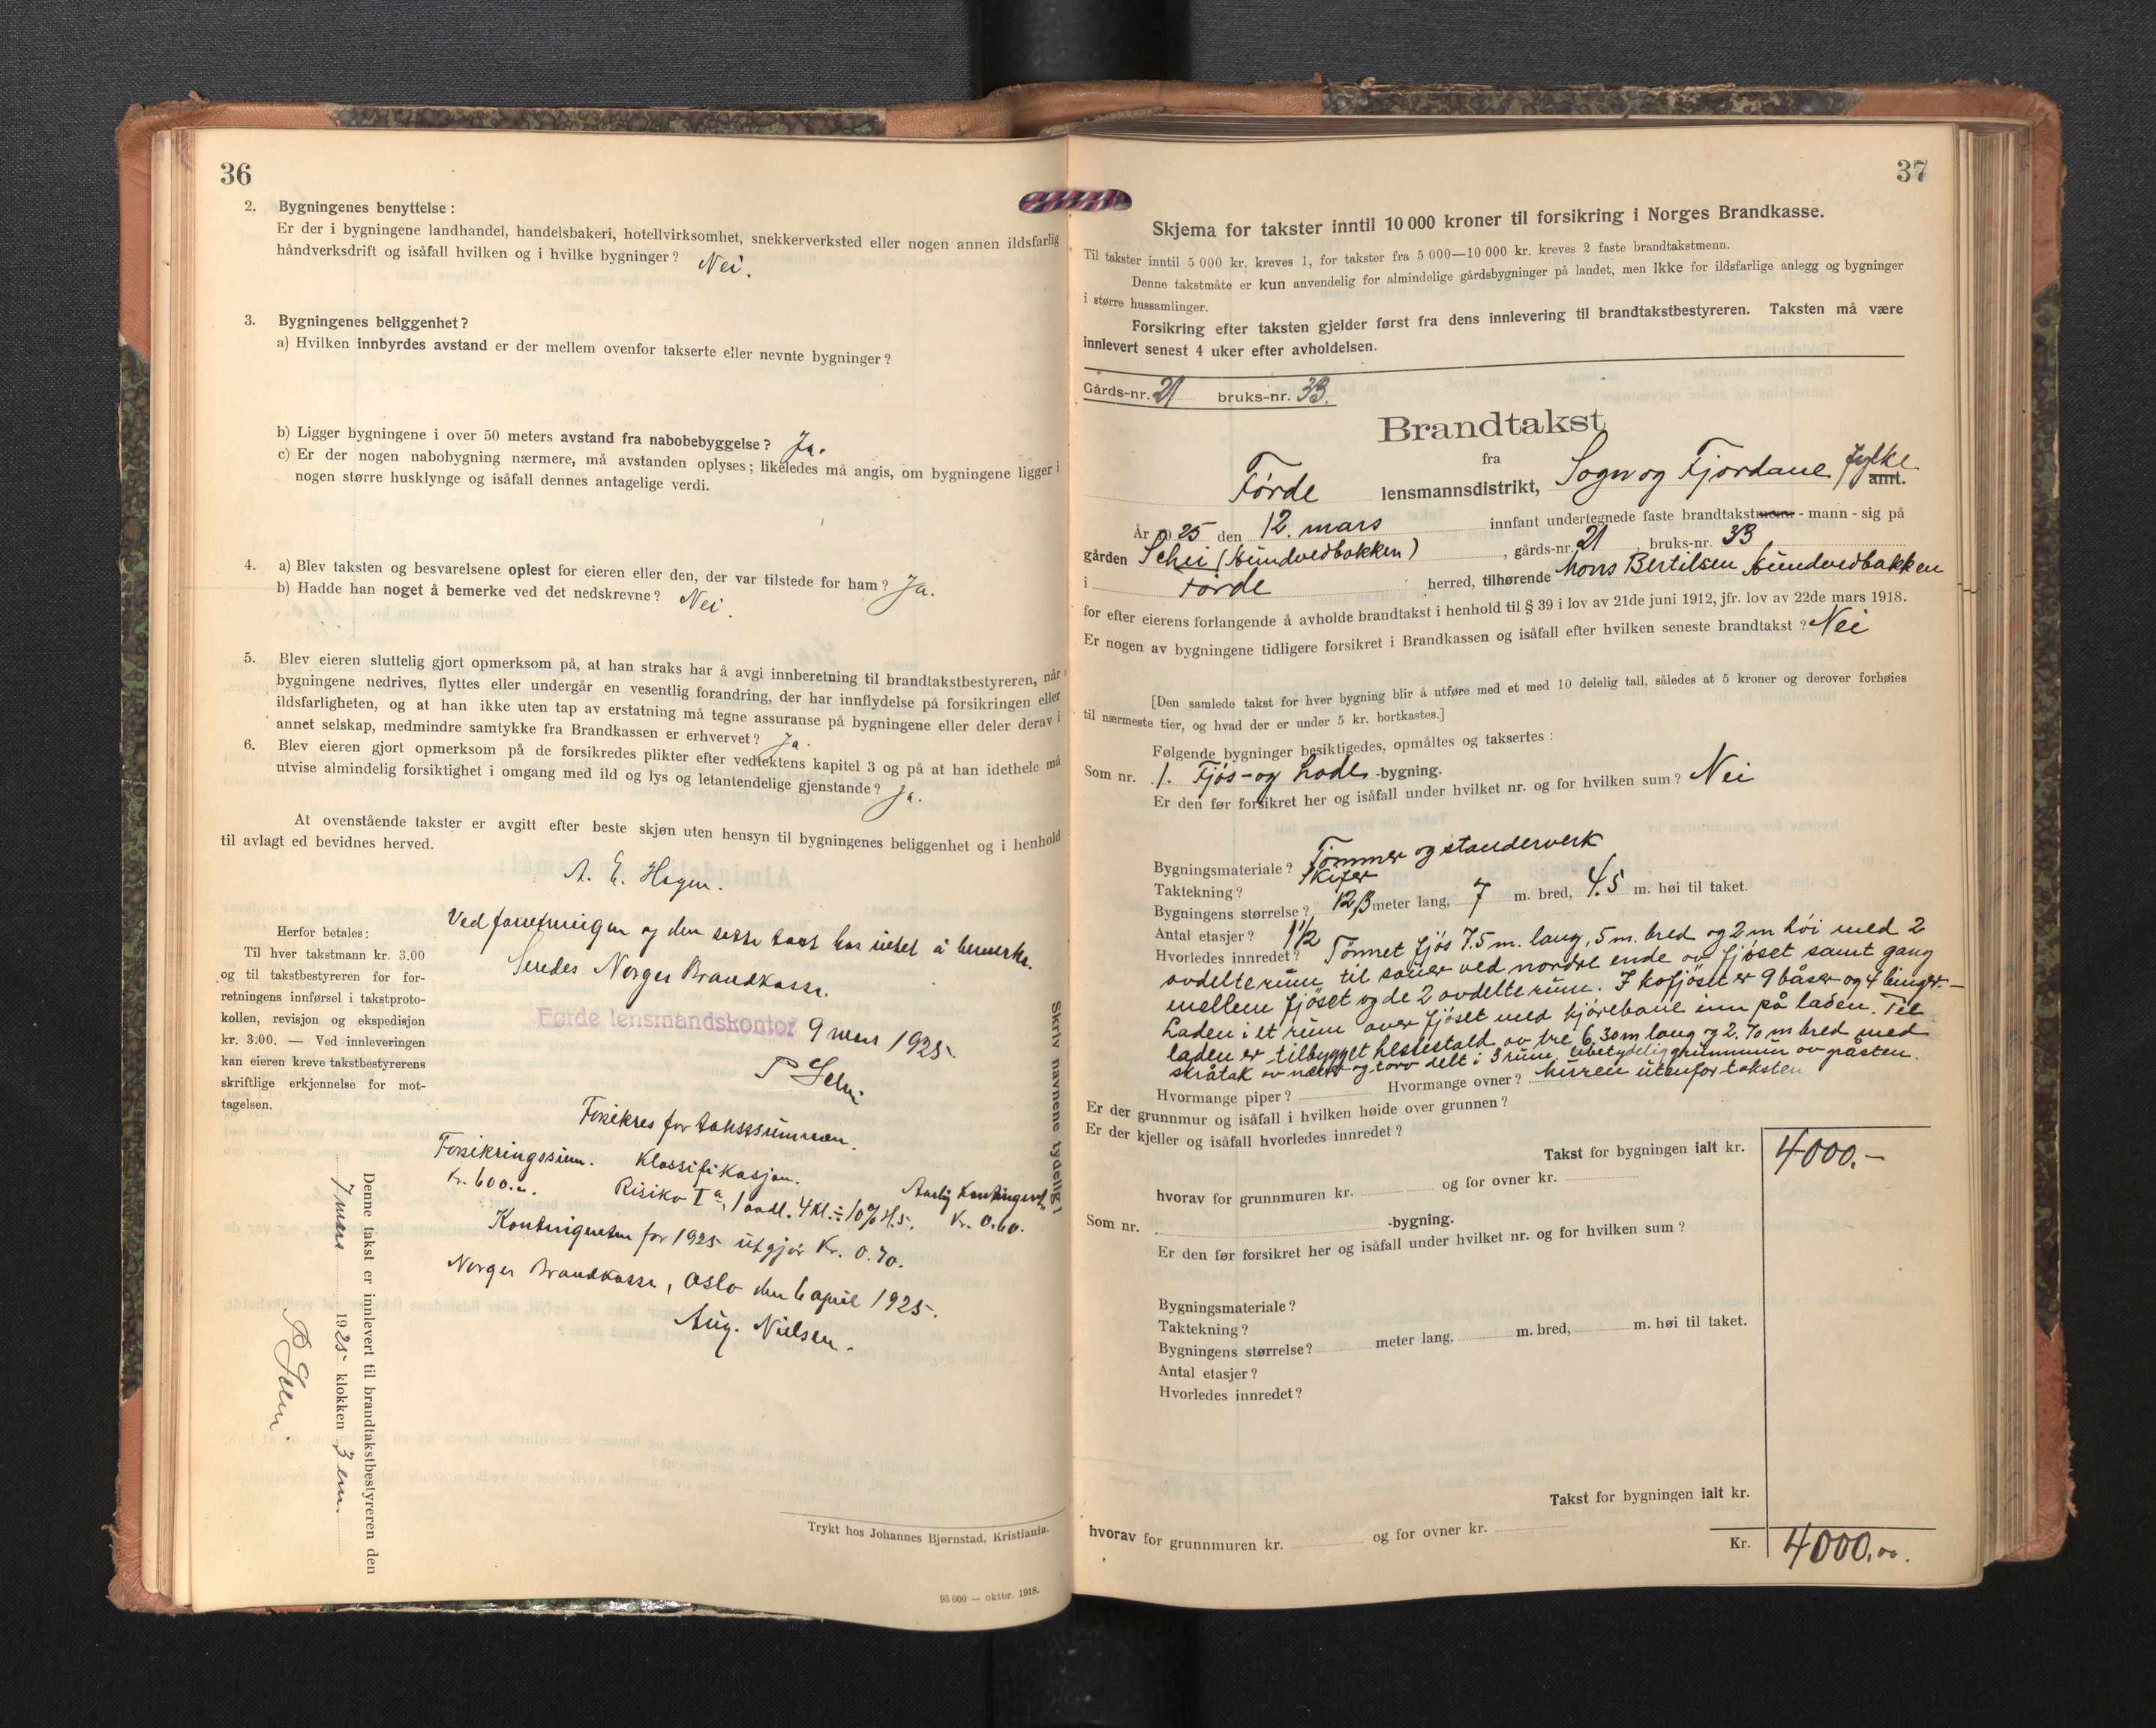 36
2. Bygningenes benyttelse:
Er der i bygningene landhandel, handelsbakeri, hotellvirksomhet, snekkerverksted eller nogen annen ildsfarlig
håndverksdrift og isåfall hvilken og i hvilke bygninger? Nei.
3. Bygningenes beliggenhet?
a) Hvilken innbyrdes avstand er der mellem ovenfor takserte eller nevnte bygninger?
b) Ligger bygningene i over 50 meters avstand fra nabobebyggelse? Ja.
c) Er der nogen nabobygning nærmere, må avstanden oplyses; likeledes må angis, om bygningene ligger i
nogen større husklynge og isåfall dennes antagelige verdi.
4. a) Blev taksten og besvarelsene oplest for eieren eller den, der var tilstede for ham? Ja.
b) Hadde han noget å bemerke ved det nedskrevne? Nei.
5. Blev eieren sluttelig gjort opmerksom på, at han straks har å avgi innberetning til brandtakstbestyreren, når
bygningene nedrives, flyttes eller undergår en vesentlig forandring, der har innflydelse på forsikringen eller
ildsfarligheten, og at han ikke uten tap av erstatning må tegne assuranse på bygningene eller deler derav i
annet selskap, medmindre samtykke fra Brandkassen er erhvervet? Ja.
6. Blev eieren gjort opmerksom på de forsikredes plikter efter vedtektens kapitel 3 og på at han idethele må
utvise almindelig forsiktighet i omgang med ild og lys og letantendelige gjenstande? Ja.
At ovenstående takster er avgitt efter beste skjøn uten hensyn til bygningenes beliggenhet og i henhold
til avlagt ed bevidnes herved.
A. E. Hagen.
Herfor betales:
Til hver takstmann kr. 3.00
og til takstbestyreren for for-
retningens innførsel i takstproto-
kollen, revisjon og ekspedisjon
kr. 3.00. — Ved innleveringen
kan eieren kreve takstbestyrerens
skriftlige erkjennelse for mot-
tagelsen.
Ved forretningen og den satte takst har intet å bemerke.
Sendes Norges Brandkasse.
Førde lensmandskontor 9 mars 1925.
P Schei
Forsikres for takstsummen.
Forsikringssum. Klassifikasjon. Aarlig Kontingent
Kr. 600.-. Risiko Ia, 1 avdl. 4 Kl. ÷ 10% H.S. Kr. 0.60.
Kontingenten for 1925 utgjør Kr. 0.70.
Norges Brandkasse, Oslo den 6 april 1925.
Aug. Nielsen.
Skriv navnene tydelig!
Denne takst er innlevert til brandtakstbestyreren den
7 mars 1925 klokken 3 em.
P Schei.
Trykt hos Johannes Bjørnstad, Kristiania.
95 000 — oktbr. 1918.
37
Skjema for takster inntil 10 000 kroner til forsikring i Norges Brandkasse.
Til takster inntil 5 000 kr. kreves 1, for takster fra 5 000—10 000 kr. kreves 2 faste brandtakstmenn.
Denne takstmåte er kun anvendelig for almindelige gårdsbygninger på landet, men ikke for ildsfarlige anlegg og bygninger
i større hussamlinger.
Forsikring efter taksten gjelder først fra dens innlevering til brandtakstbestyreren. Taksten må være
innlevert senest 4 uker efter avholdelsen.
Gårds-nr. 21 bruks-nr. 33.
Brandtakst
fra
Förde lensmannsdistrikt, Sogn og Fjordane fylke amt.
År 1925 den 12. mars innfant undertegnede faste brandtakstmenn - mann - sig på
gården Schei (Hundvedbakken), gårds-nr. 21 bruks-nr. 33
i Förde herred, tilhørende Mons Bertilsen Hundvedbakken
for efter eierens forlangende å avholde brandtakst i henhold til § 39 i lov av 21de juni 1912, jfr. lov av 22de mars 1918.
Er nogen av bygningene tidligere forsikret i Brandkassen og isåfall efter hvilken seneste brandtakst? Nei
[Den samlede takst for hver bygning blir å utføre med et med 10 delelig tall, således at 5 kroner og derover forhøies
til nærmeste tier, og hvad der er under 5 kr. bortkastes.]
Følgende bygninger besiktigedes, opmåltes og taksertes:
Som nr. 1. Fjøs- og Lade -bygning.
Er den før forsikret her og isåfall under hvilket nr. og for hvilken sum? Nei
Bygningsmateriale? Tömmer og standerverk
Taktekning? Skifer
Bygningens størrelse? 12,3 meter lang, 7 m. bred, 4.5 m. høi til taket.
Antal etasjer? 1 1/2
Hvorledes innredet? Tömret fjös 7.5 m. lang, 5 m. bred og 2 m höi med 2
avdelte rum til sauer ved nordre ende av fjöset samt gang
mellem fjöset og de 2 avdelte rum. I kofjöset er 9 båser og 4 binger.—
Laden i et rum over fjöset med kjörebane inn på laden. Til
laden er tilbygget hestestald av tre 6,30 m lang og 2.70 m bred med
skråtak av næver og torv delt i 3 rum. Ubetydelig grunnmur av gråsten.
Hvormange piper? Hvormange ovner? Muren utenfor taksten
Er der grunnmur og isåfall i hvilken høide over grunnen?
Er der kjeller og isåfall hvorledes innredet?
Takst for bygningen ialt kr. 4000.-
hvorav for grunnmuren kr. og for ovner kr.
Som nr. -bygning.
Er den før forsikret her og isåfall under hvilket nr. og for hvilken sum?
Bygningsmateriale?
Taktekning?
Bygningens størrelse? meter lang, m. bred, m. høi til taket.
Antal etasjer?
Hvorledes innredet?
Takst for bygningen ialt kr.
hvorav for grunnmuren kr. og for ovner kr.
Kr. 4000,00.